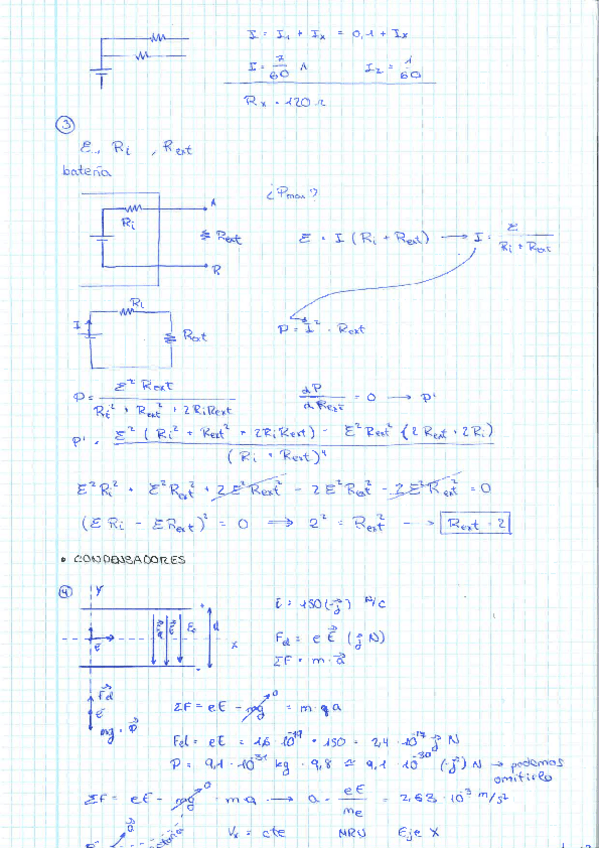 I = I₁ + Iₓ = 0,1 + Iₓ
I = 7/60 A    I₂ = 1/60
Rₓ = 120 Ω
③
ε, Ri, Rext
batería
¿Pmax?
A
Ri
Rext
ε = I (Ri + Rext) → I = ε / (Ri + Rext)
Ri
I
Rext
P = I² · Rext
P = ε² Rext / (Ri² + Rext² + 2RiRext)    dP/dRext = 0 → P'
P' = (ε² (Ri² + Rext² + 2RiRext) - ε² Rext² (2Rext + 2Ri)) / (Ri + Rext)⁴
ε²Ri² + ε²Rext² + 2ε²Rext² - 2ε²Rext² - 2ε²Rext² = 0
(εRi - εRext)² = 0 ⟹ 2² = Rext² --> Rext = 2
• CONDENSADORES
④ y
E = 150(-j) N/C
d
x
Fd = e E (j N)
ΣF = m · a
Fd
mg = P
ΣF = eE - mg⁰ = m · a
Fd = eE = 1,6 · 10⁻¹⁹ · 150 = 2,4 · 10⁻¹⁷ j N
P = 9,1 · 10⁻³¹ kg · 9,8 ≅ 9,1 · 10⁻³⁰ (-j) N → podemos
omitirlo
ΣF = eE - mg⁰ = ma → a = eE/me = 2,63 · 10³ m/s²
Vₓ = cte    MRU    Eje X